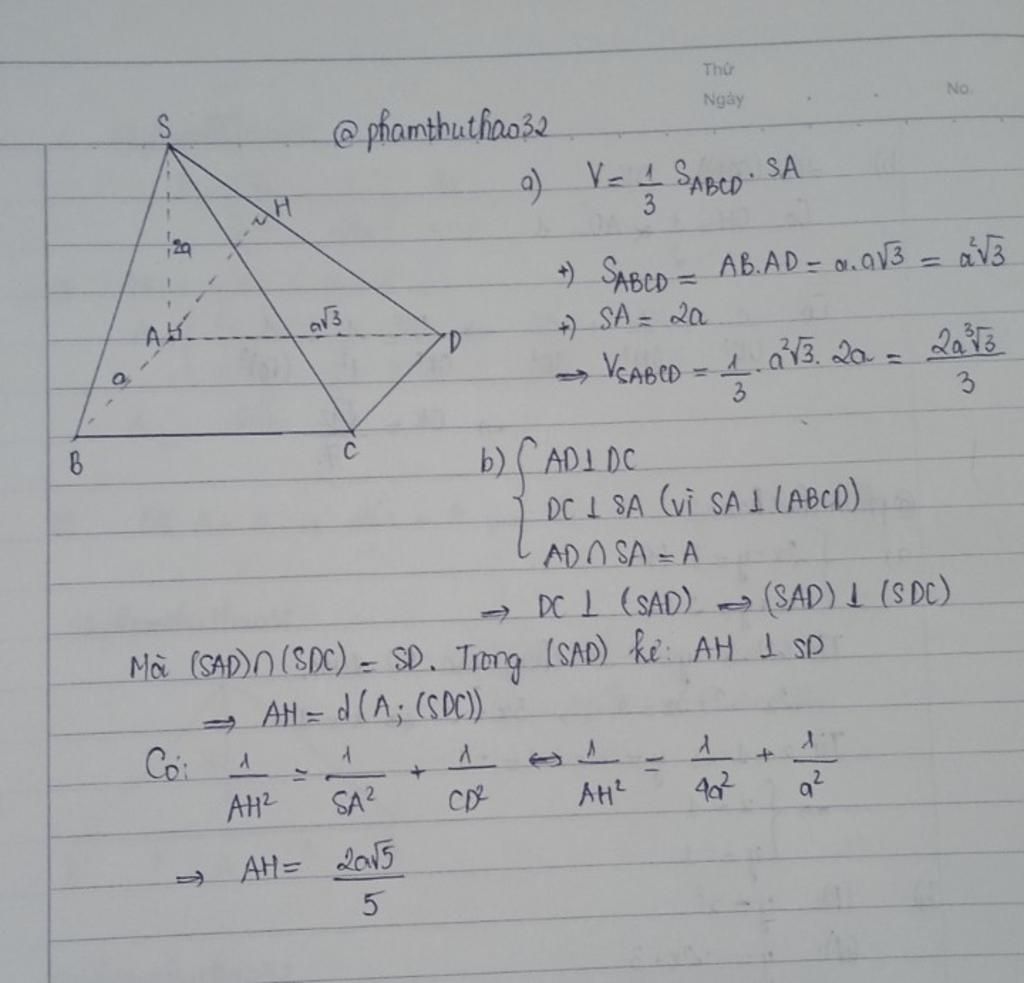 Thứ
Ngày
No.
@phamthuthao32
S
H
2a
A
a√3
D
a
B
C
a) V = 1/3 S_ABCD . SA
+) S_ABCD = AB.AD = a.a√3 = a²√3
+) SA = 2a
⇒ V_SABCD = 1/3 . a²√3 . 2a = 2a³√3/3
b) { AD ⊥ DC
DC ⊥ SA (vì SA ⊥ (ABCD)
AD ∩ SA = A
⇒ DC ⊥ (SAD) ⇒ (SAD) ⊥ (SDC)
Mà (SAD) ∩ (SDC) = SD. Trong (SAD) kẻ: AH ⊥ SD
⇒ AH = d(A; (SDC))
Có: 1/AH² = 1/SA² + 1/CD² ⇔ 1/AH² = 1/4a² + 1/a²
⇒ AH = 2a√5/5